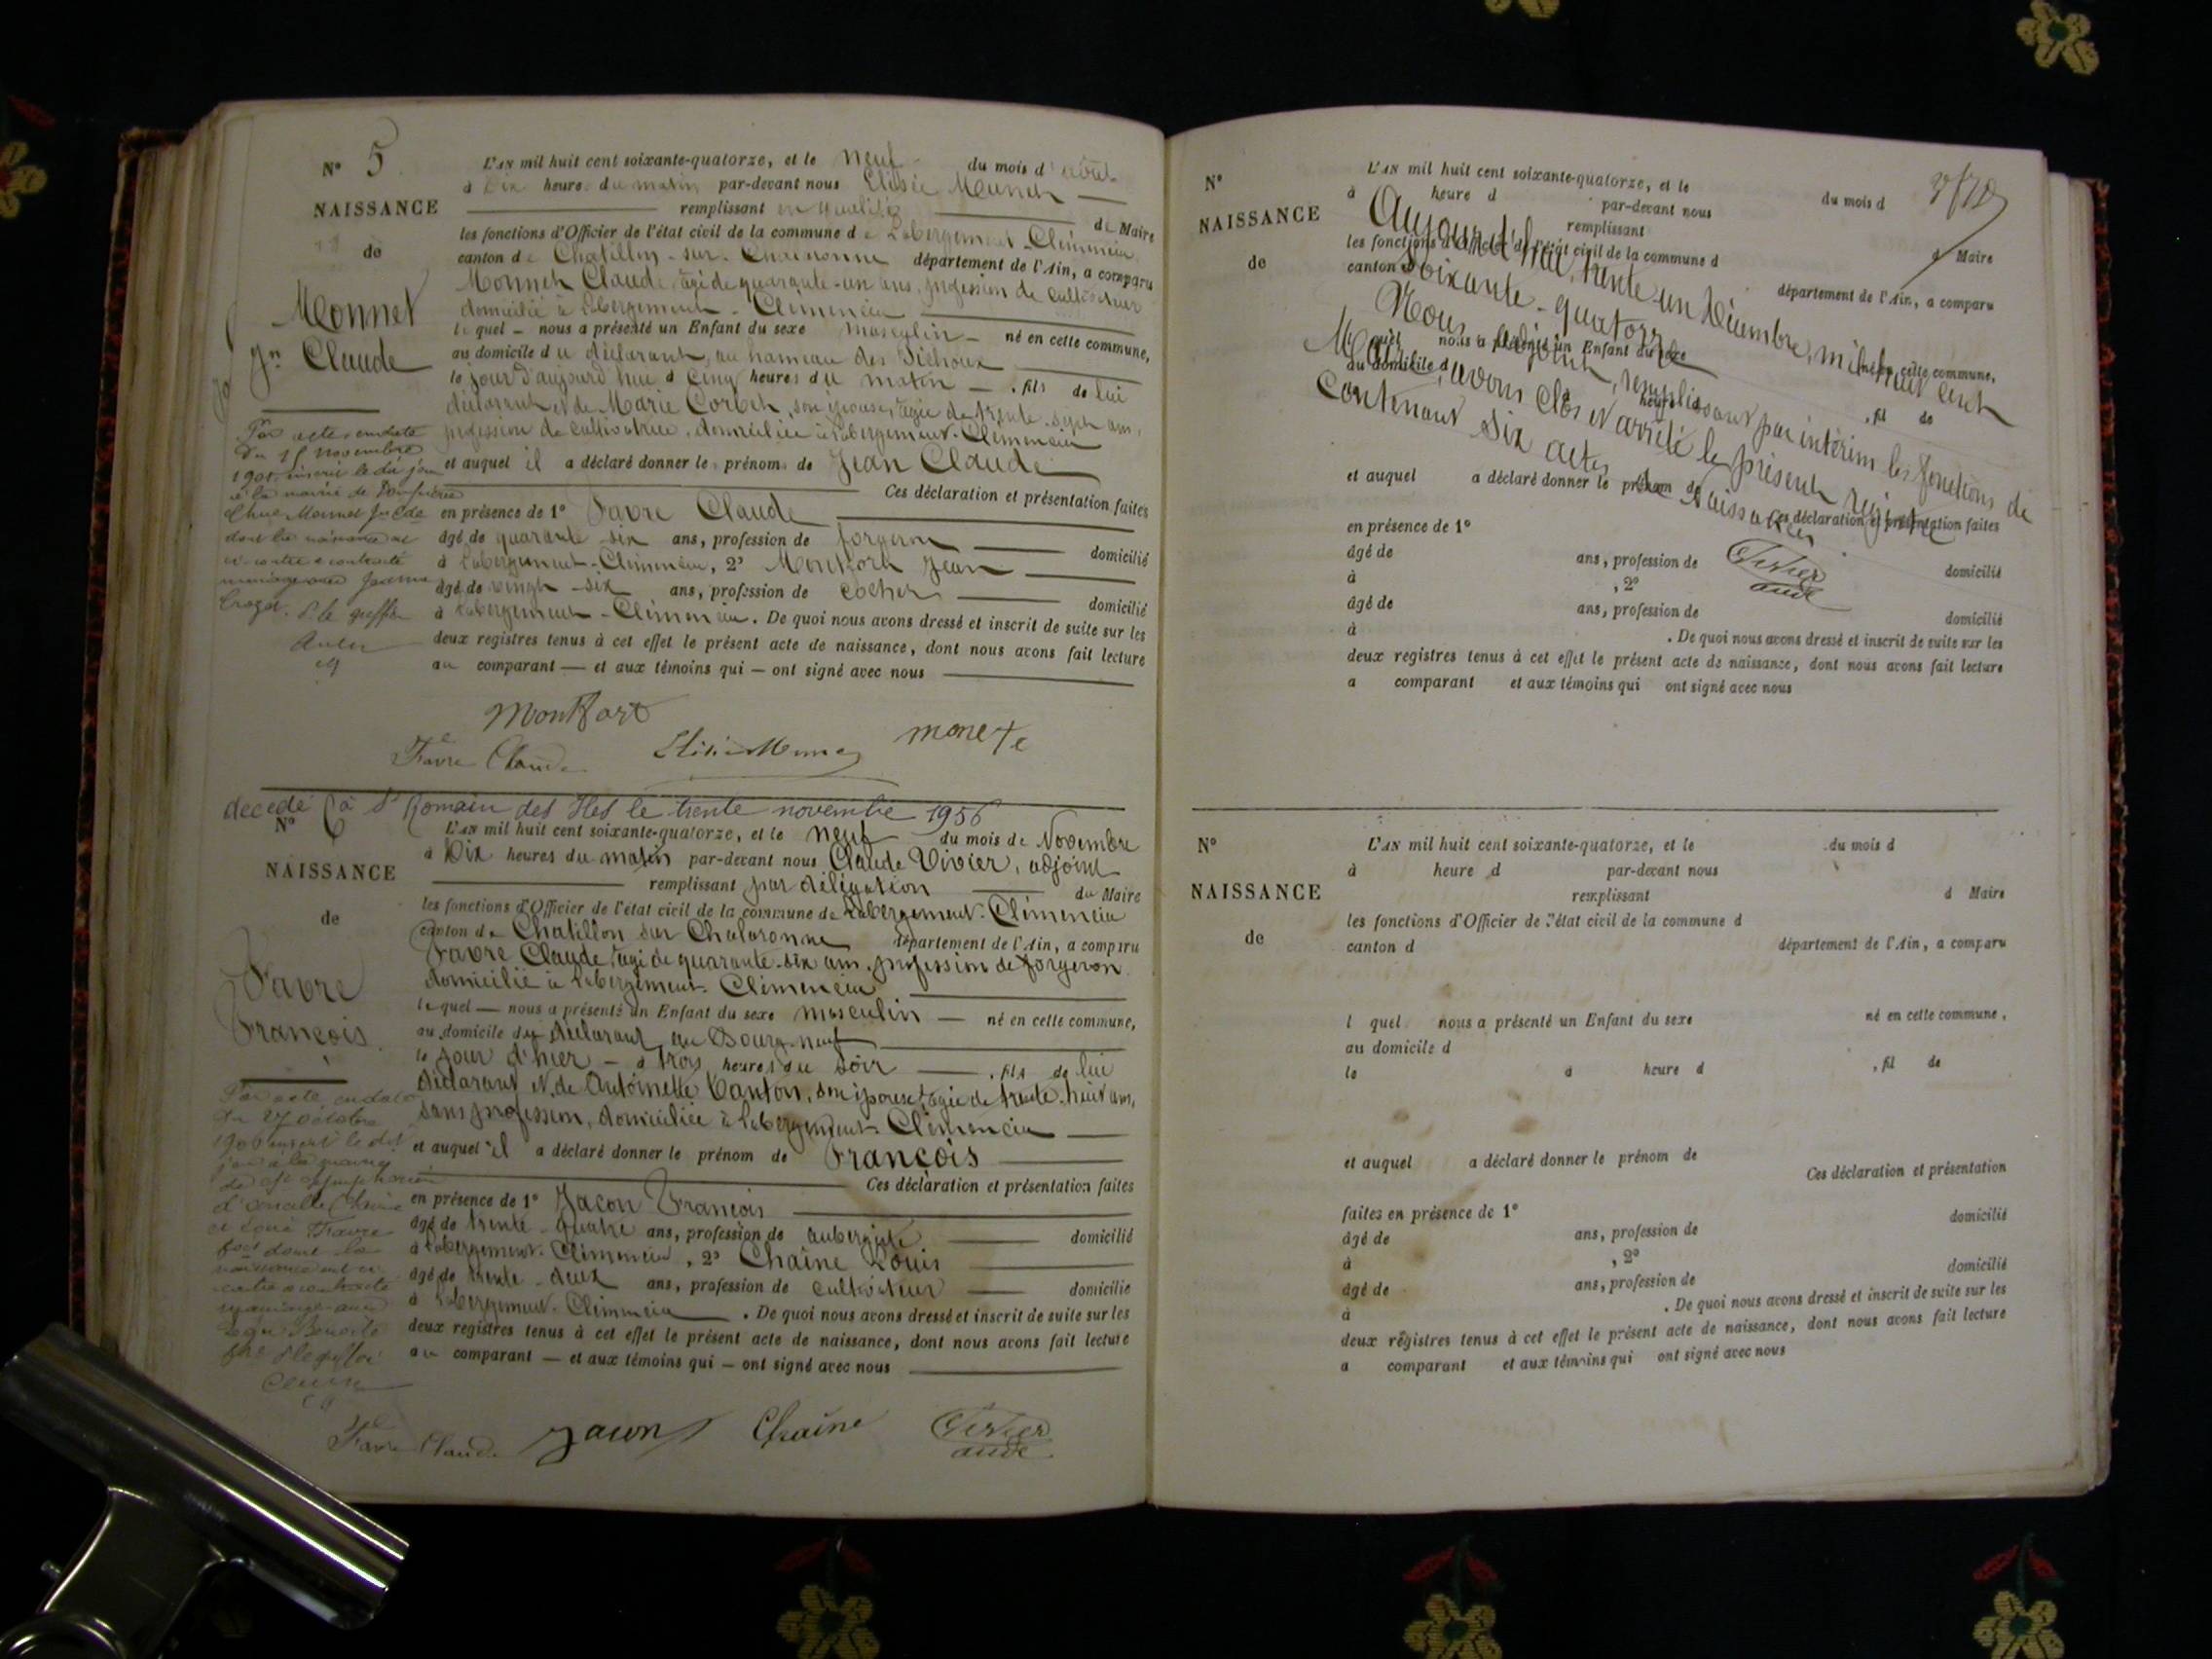 N° 5
NAISSANCE
de
Monnet
Jn Claude
L'AN mil huit cent soixante-quatorze, et le neuf du mois d'août
à Dix heures du matin par-devant nous Elisée
remplissant en qualité de Maire
les fonctions d'Officier de l'état civil de la commune de Labergement-Clémencia
canton de Chatillon-sur-Chalaronne département de l'Ain, a comparu
Monnet Claude, âgé de quarante-un ans, profession de cultivateur
domicilié à Labergement-Clémencia
lequel nous a présenté un Enfant du sexe masculin né en cette commune,
au domicile du déclarant, au hameau des
le jour d'aujourd'hui à cinq heures du matin, fils de lui
déclarant et de Marie Corbet, son épouse, âgée de trente-sept ans,
profession de cultivatrice, domiciliée à Labergement-Clémencia
et auquel il a déclaré donner les prénoms de Jean Claude
Ces déclaration et présentation faites
en présence de 1° Favre Claude
âgé de quarante six ans, profession de forgeron domicilié
à Labergement-Clémencia, 2° Montfort Jean
âgé de vingt-six ans, profession de cocher domicilié
à Labergement-Clémencia. De quoi nous avons dressé et inscrit de suite sur les
deux registres tenus à cet effet le présent acte de naissance, dont nous avons fait lecture
au comparant et aux témoins qui ont signé avec nous
Par acte en date
du 15 novembre
1901 inscrit le dit jour
à la mairie de
Monnet Jn Cde
dont la naissance est
ci-contre a contracté
mariage avec
P. le greffier
Montfort
Favre Claude
décédé à St Romain des Iles le trente novembre 1956
N° 6
NAISSANCE
de
Favre
François
L'AN mil huit cent soixante-quatorze, et le neuf du mois de Novembre
à Dix heures du matin par-devant nous Claude Vivier, adjoint
remplissant par délégation du Maire
les fonctions d'Officier de l'état civil de la commune de Labergement-Clémencia
canton de Chatillon sur Chalaronne département de l'Ain, a comparu
Favre Claude, âgé de quarante-six ans, profession de forgeron
domicilié à Labergement-Clémencia
lequel nous a présenté un Enfant du sexe masculin né en cette commune,
au domicile du déclarant, au Bourg-neuf
le jour d'hier à trois heures du soir, fils de lui
déclarant et de Antoinette Canton, son épouse, âgée de trente-huit ans,
sans profession, domiciliée à Labergement-Clémencia
et auquel il a déclaré donner le prénom de François
Ces déclaration et présentation faites
en présence de 1° Jacon François
âgé de trente-quatre ans, profession de aubergiste domicilié
à Labergement-Clémencia, 2° Chaîne Louis
âgé de trente-deux ans, profession de cultivateur domicilié
à Labergement-Clémencia. De quoi nous avons dressé et inscrit de suite sur les
deux registres tenus à cet effet le présent acte de naissance, dont nous avons fait lecture
au comparant et aux témoins qui ont signé avec nous
Par acte en date
du 27 octobre
1900 inscrit le dit
jour à la mairie
de St Symphorien
d'Ancelles
Favre
fçois dont la
naissance est ci
contre a contracté
mariage avec
Benoite
P. le greffier
Favre Claude Jacon Chaîne Vivier
N°
NAISSANCE
de
L'AN mil huit cent soixante-quatorze, et le du mois d
à heure d par-devant nous
remplissant d Maire
les fonctions d'Officier de l'état civil de la commune d
canton d département de l'Ain, a comparu
l quel nous a présenté un Enfant du sexe né en cette commune,
au domicile d
heure d , fil de
et auquel a déclaré donner le prénom de
Ces déclaration et présentation faites
en présence de 1°
âgé de ans, profession de domicilié
à , 2°
âgé de ans, profession de domicilié
à . De quoi nous avons dressé et inscrit de suite sur les
deux registres tenus à cet effet le présent acte de naissance, dont nous avons fait lecture
a comparant et aux témoins qui ont signé avec nous
Aujourd'hui, trente-un Décembre, mil huit cent
soixante-quatorze
Nous, adjoint, remplissant par intérim les fonctions de
Maire, avons clos et arrêté le présent registre
contenant six actes de Naissances
Vivier
N°
NAISSANCE
de
L'AN mil huit cent soixante-quatorze, et le du mois d
à heure d par-devant nous
remplissant d Maire
les fonctions d'Officier de l'état civil de la commune d
canton d département de l'Ain, a comparu
l quel nous a présenté un Enfant du sexe né en cette commune,
au domicile d
le à heure d , fil de
et auquel a déclaré donner le prénom de
Ces déclaration et présentation
faites en présence de 1°
âgé de ans, profession de domicilié
à , 2°
âgé de ans, profession de domicilié
à . De quoi nous avons dressé et inscrit de suite sur les
deux registres tenus à cet effet le présent acte de naissance, dont nous avons fait lecture
a comparant et aux témoins qui ont signé avec nous